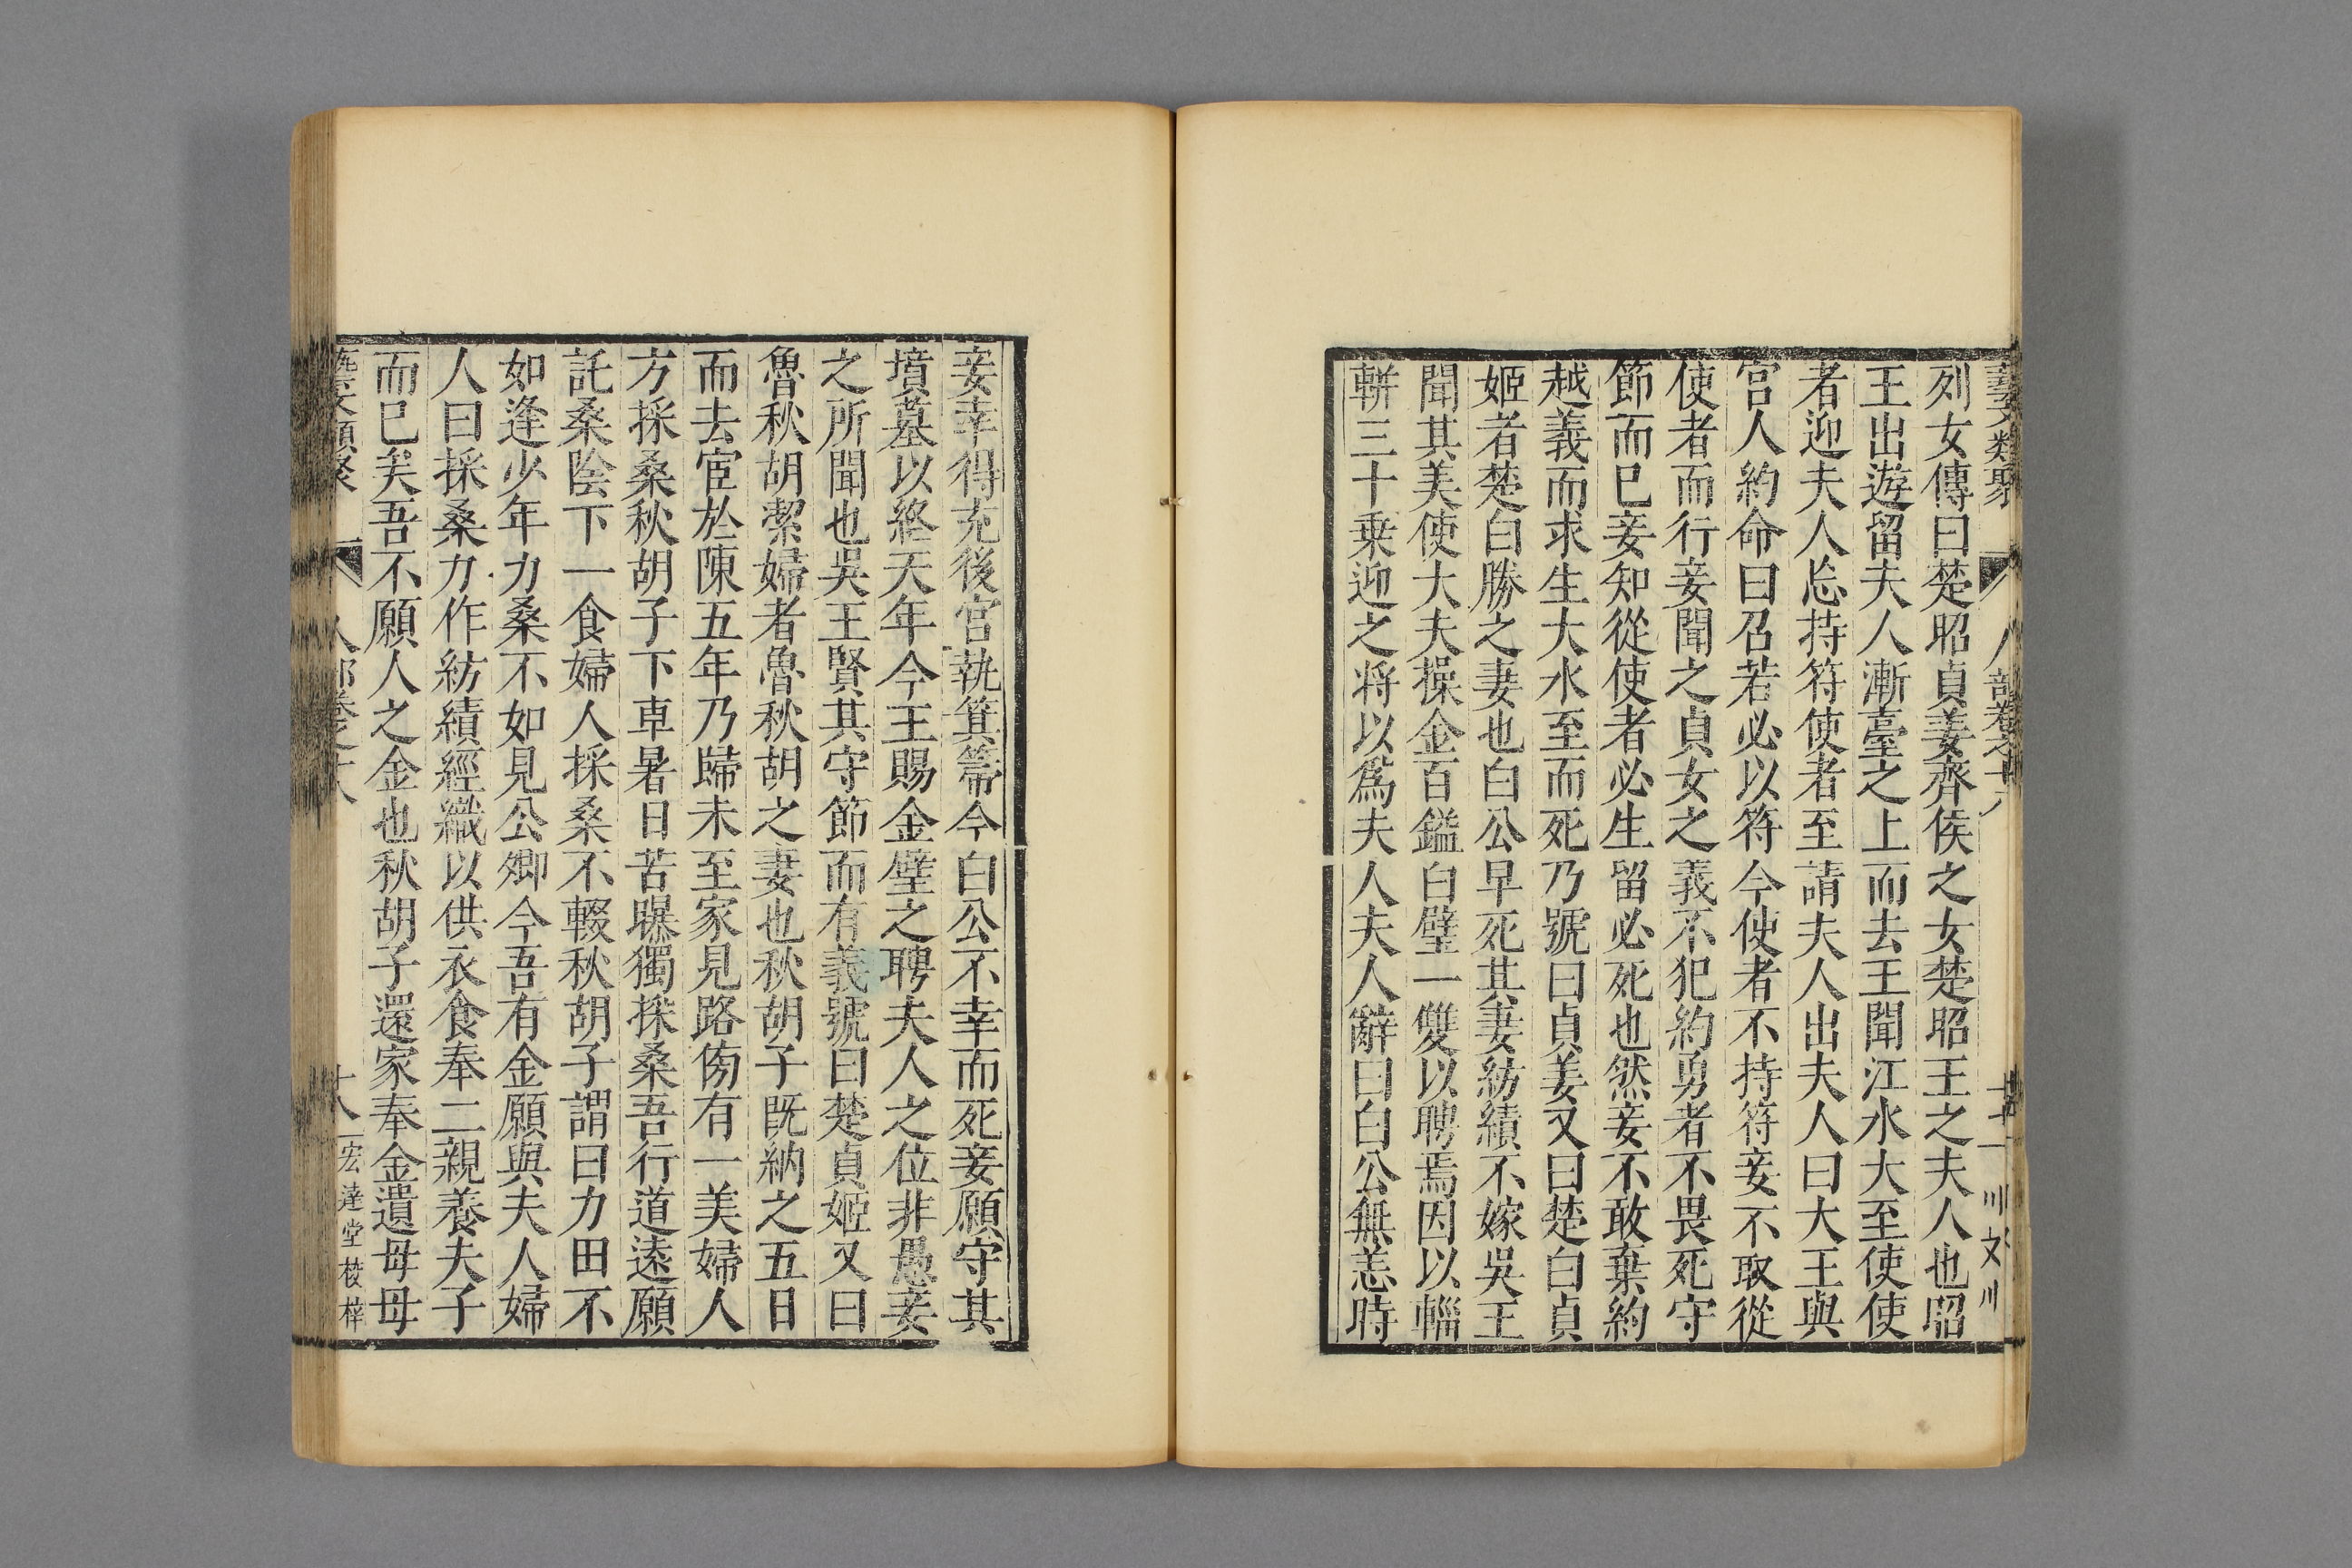 藝文類聚 人部卷之十八
列女傳曰楚昭貞姜齊侯之女楚昭王之夫人也昭
王出遊留夫人漸臺之上而去王聞江水大至使使
者迎夫人忘持符使者至請夫人出夫人曰大王與
宮人約命曰召若必以符今使者不持符妾不敢從
使者而行妾聞之貞女之義不犯約勇者不畏死守
節而已妾知從使者必生留必死也然妾不敢棄約
越義而求生大水至而死乃號曰貞姜又曰楚白貞
姬者楚白勝之妻也白公早死其妻紡績不嫁吳王
聞其美使大夫操金百鎰白璧一雙以聘焉因以輜
軿三十乗迎之將以爲夫人夫人辭曰白公無恙時
妾幸得充後宮執箕箒今白公不幸而死妾願守其
墳墓以終天年今王賜金璧之聘夫人之位非愚妾
之所聞也吳王賢其守節而有義號曰楚貞姬又曰
魯秋胡潔婦者魯秋胡之妻也秋胡子既納之五日
而去宦於陳五年乃歸未至家見路傍有一美婦人
方採桑秋胡子下車暑日苦曝獨採桑吾行道遠願
託桑陰下一食婦人採桑不輟秋胡子謂曰力田不
如逢少年力桑不如見公卿今吾有金願與夫人婦
人曰採桑力作紡績經織以供衣食奉二親養夫子
而已矣吾不願人之金也秋胡子還家奉金遺母母
藝文類聚 人部卷之十八 十八 宏達堂校梓